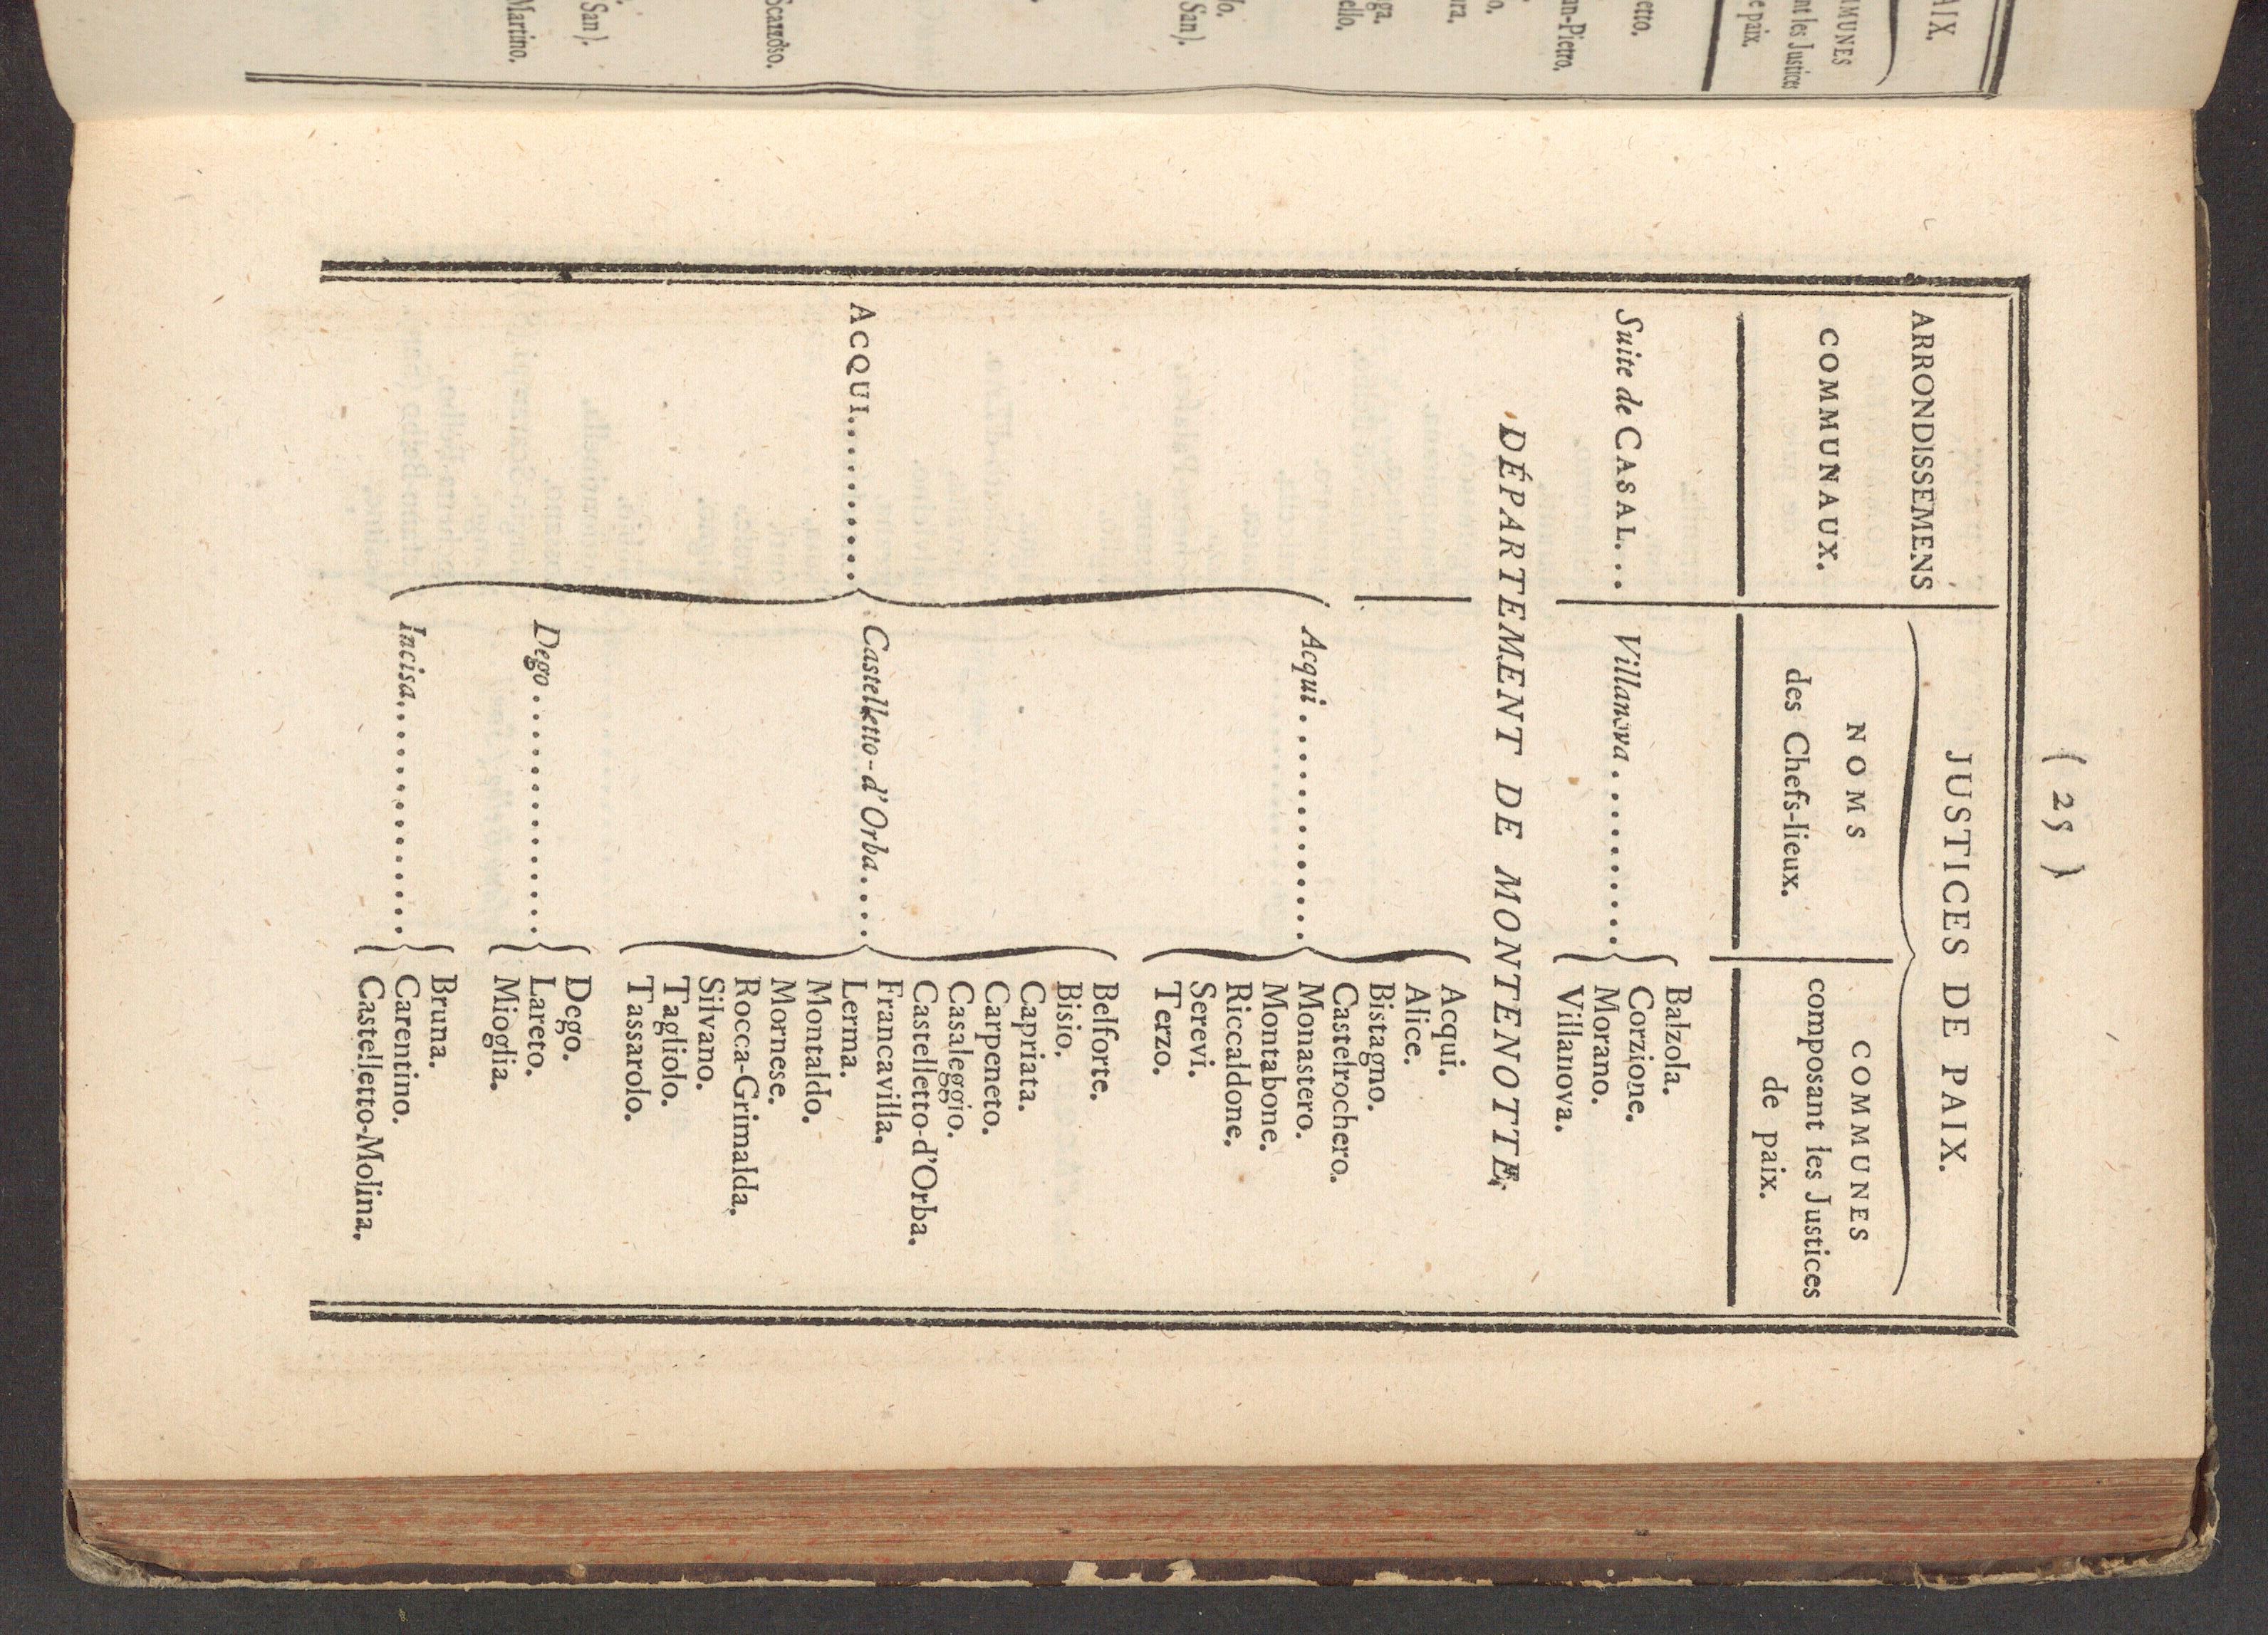 ( 25 )
ARRONDISSEMENS
COMMUNAUX.
JUSTICES DE PAIX.
NOMS
des Chefs-lieux.
COMMUNES
composant les Justices
de paix.
Suite de CASAL...
Villanova..........
Balzola.
Corzione.
Morano.
Villanova.
DÉPARTEMENT DE MONTENOTTE.
ACQUI..........
Acqui............
Acqui.
Alice.
Bistagno.
Castelrochero.
Monastero.
Montabone.
Riccaldone.
Serevi.
Terzo.
Castelletto-d'Orba....
Belforte.
Bisio.
Capriata.
Carpeneto.
Casaleggio.
Castelletto-d'Orba.
Francavilla.
Lerma.
Montaldo.
Mornese.
Rocca-Grimalda.
Silvano.
Tagliolo.
Tassarolo.
Dego.............
Dego.
Lareto.
Mioglia.
Incisa.............
Bruna.
Carentino.
Castelletto-Molina.
AIX.
MUNES
nt les Justices
e paix.
etto.
an-Pietro.
o.
ra.
ga.
ello.
lo.
San).
Scazzoso.
San).
Martino.